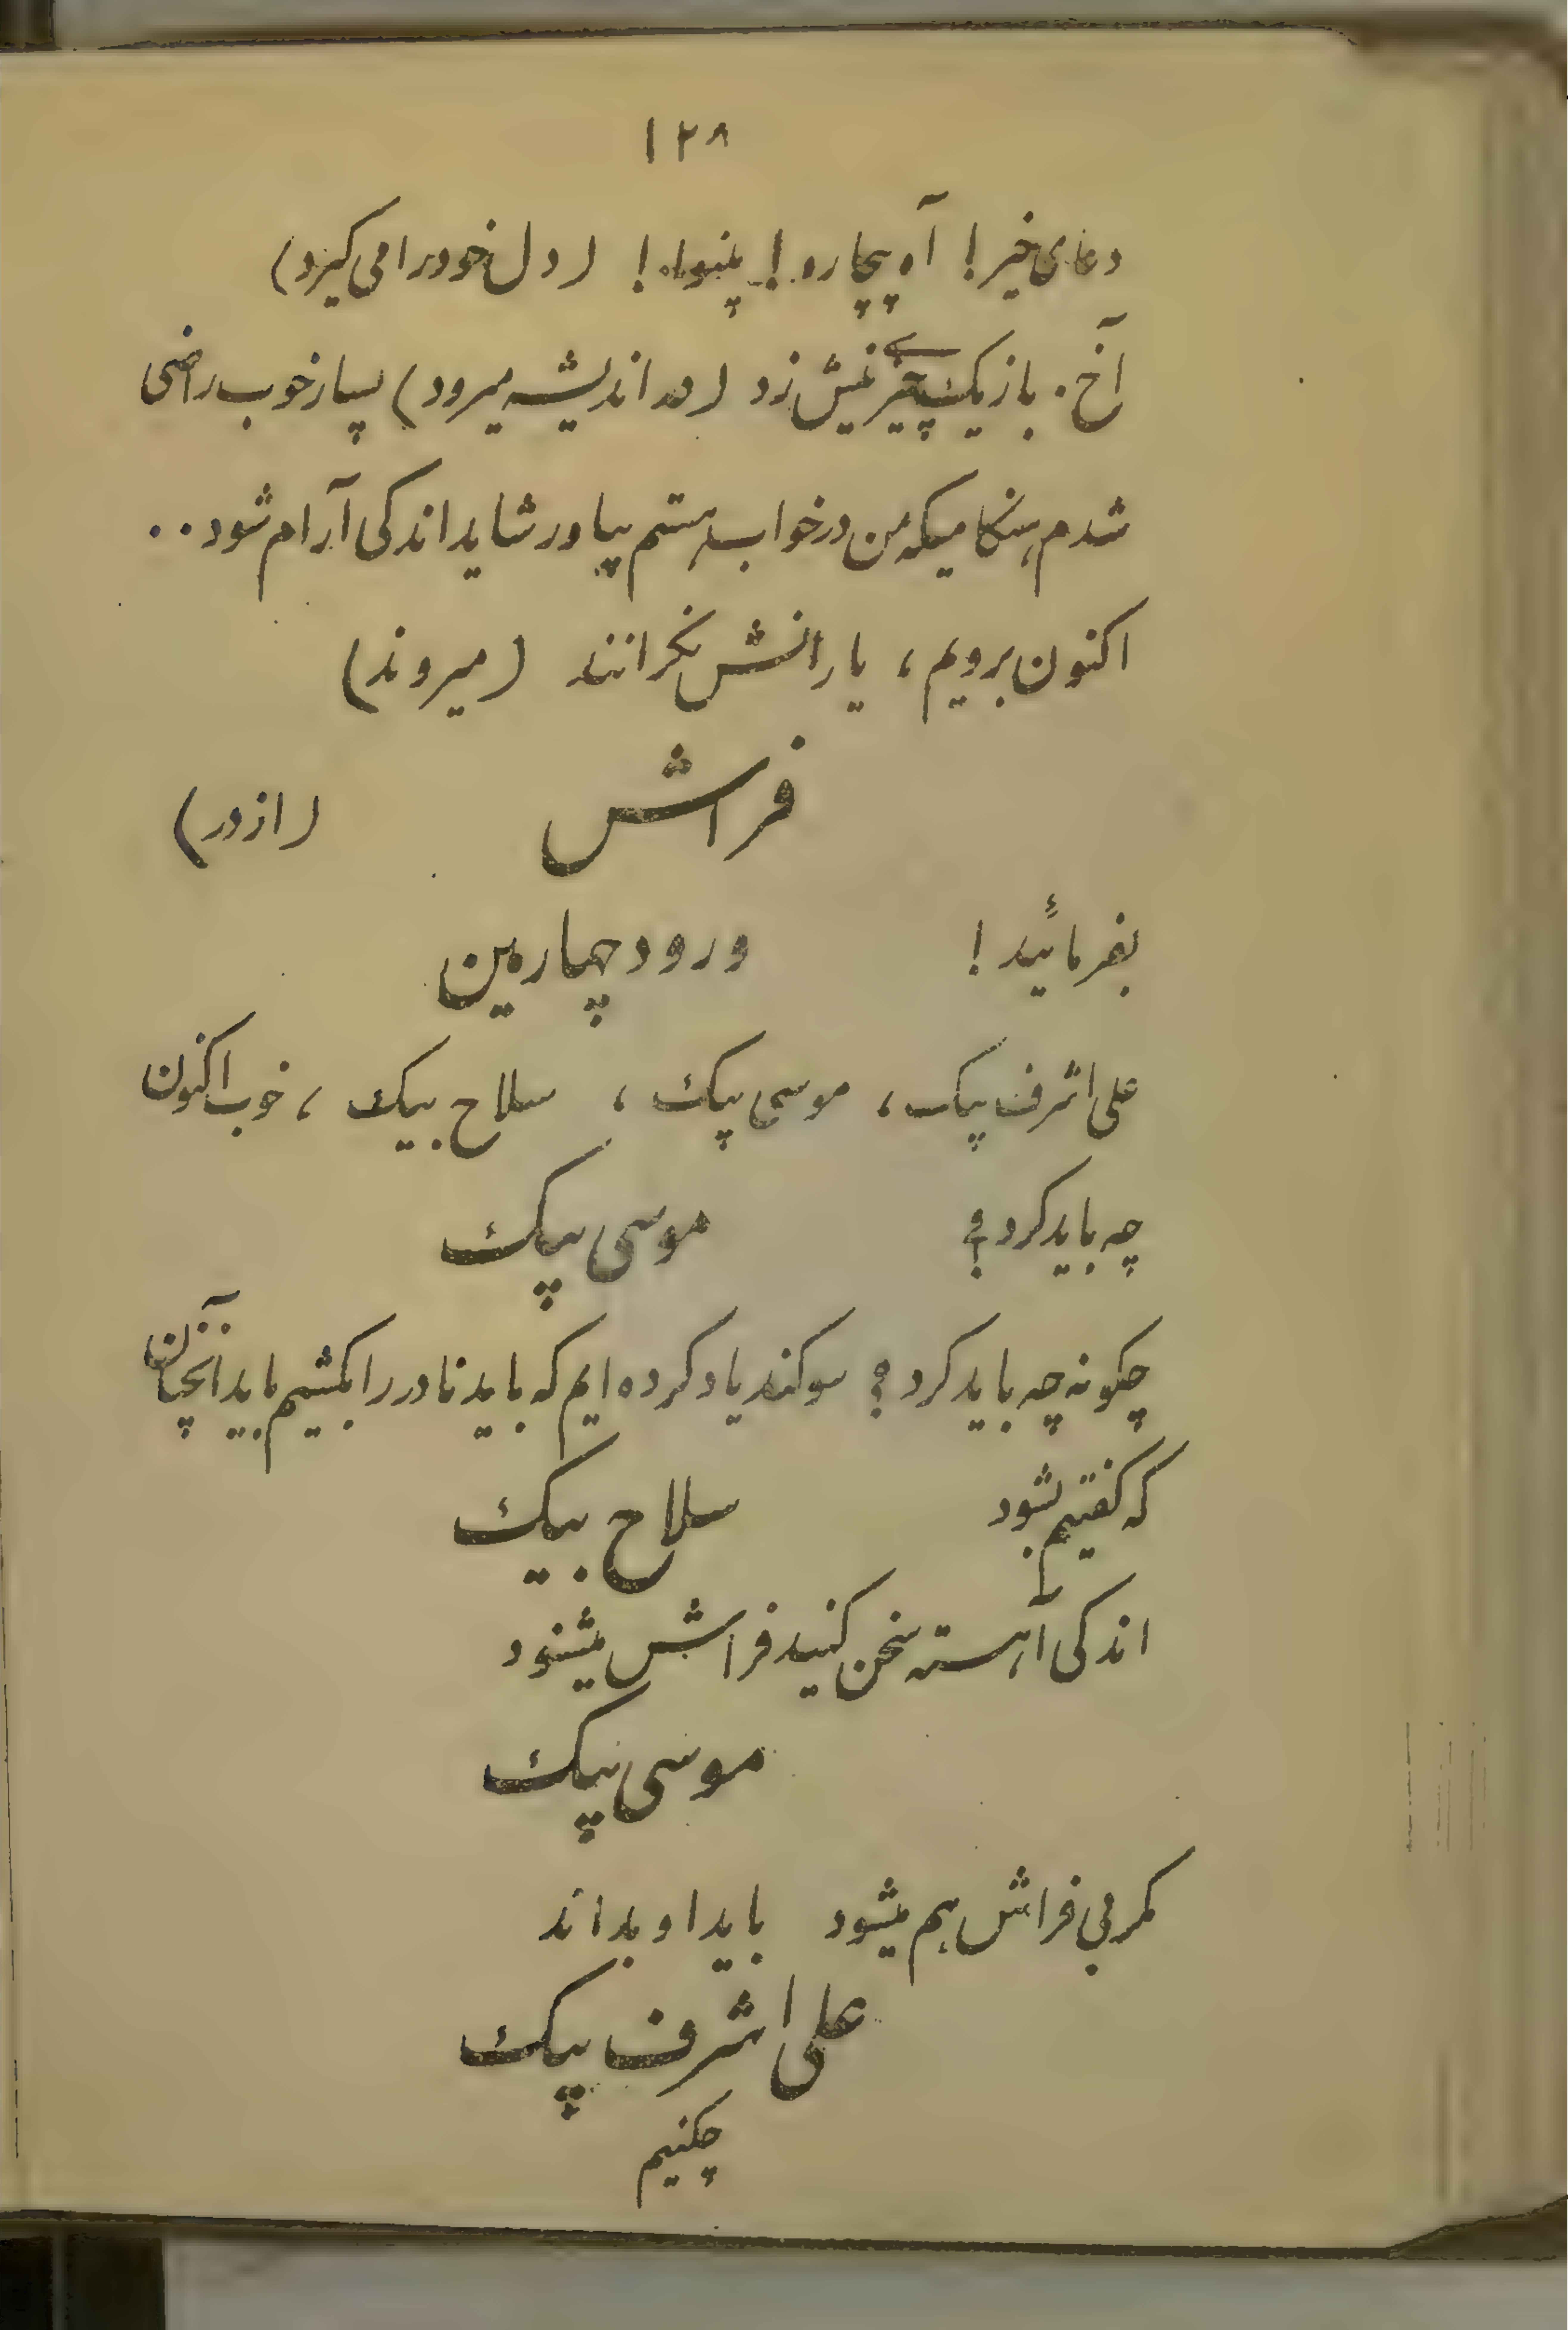 ۱۲۸
دعای خیر! آه بیچاره! بینوا! (دل خود را می‌گیرد)
آخ. باز یک چیزی نیش زد (در اندیشه میرود) بسیار خوب راضی
شدم هنگامیکه من در خواب هستم بیاور شاید اندکی آرام شود..
اکنون برویم، یارانش نگرانند (میروند)
فراش (از در)
بفرمائید! ورود چهارمین
علی اشرف بیک، موسی بیک، سلاح بیک، خوب اکنون
چه باید کرد؟ موسی بیک
چگونه چه باید کرد؟ سوگند یاد کرده ایم که باید نادر را بکشیم باید آنچنان
که گفتیم بشود سلاح بیک
اندکی آهسته سخن کنید فراش میشنود
موسی بیک
مگر بی فراش هم میشود باید او بداند
علی اشرف بیک
چکنیم